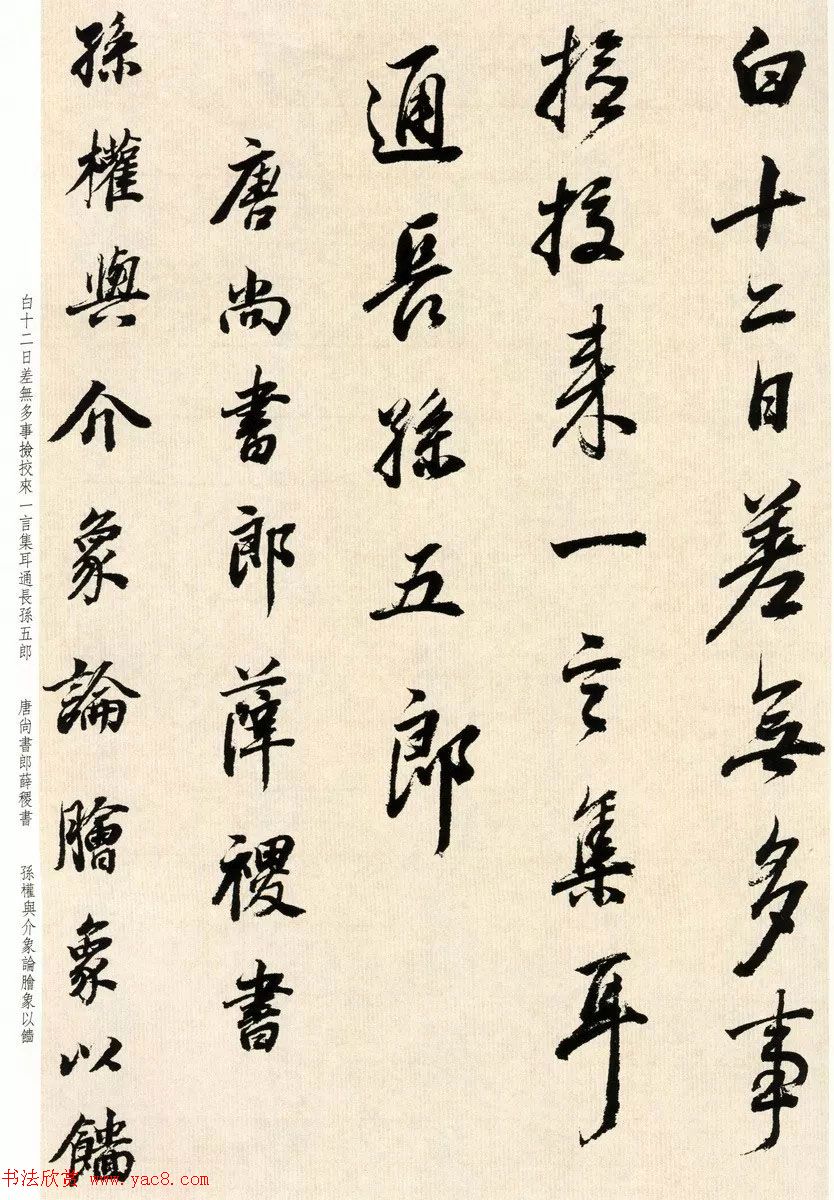 白十二日差無多事
撿挍来一言集耳
通長孫五郎
唐尚書郎薛稷書
孫權與介象論膾象以鱛
白十二日差無多事撿挍來一言集耳通長孫五郎 唐尚書郎薛稷書 孫權與介象論膾象以鱛
书法欣赏 www.yac8.com